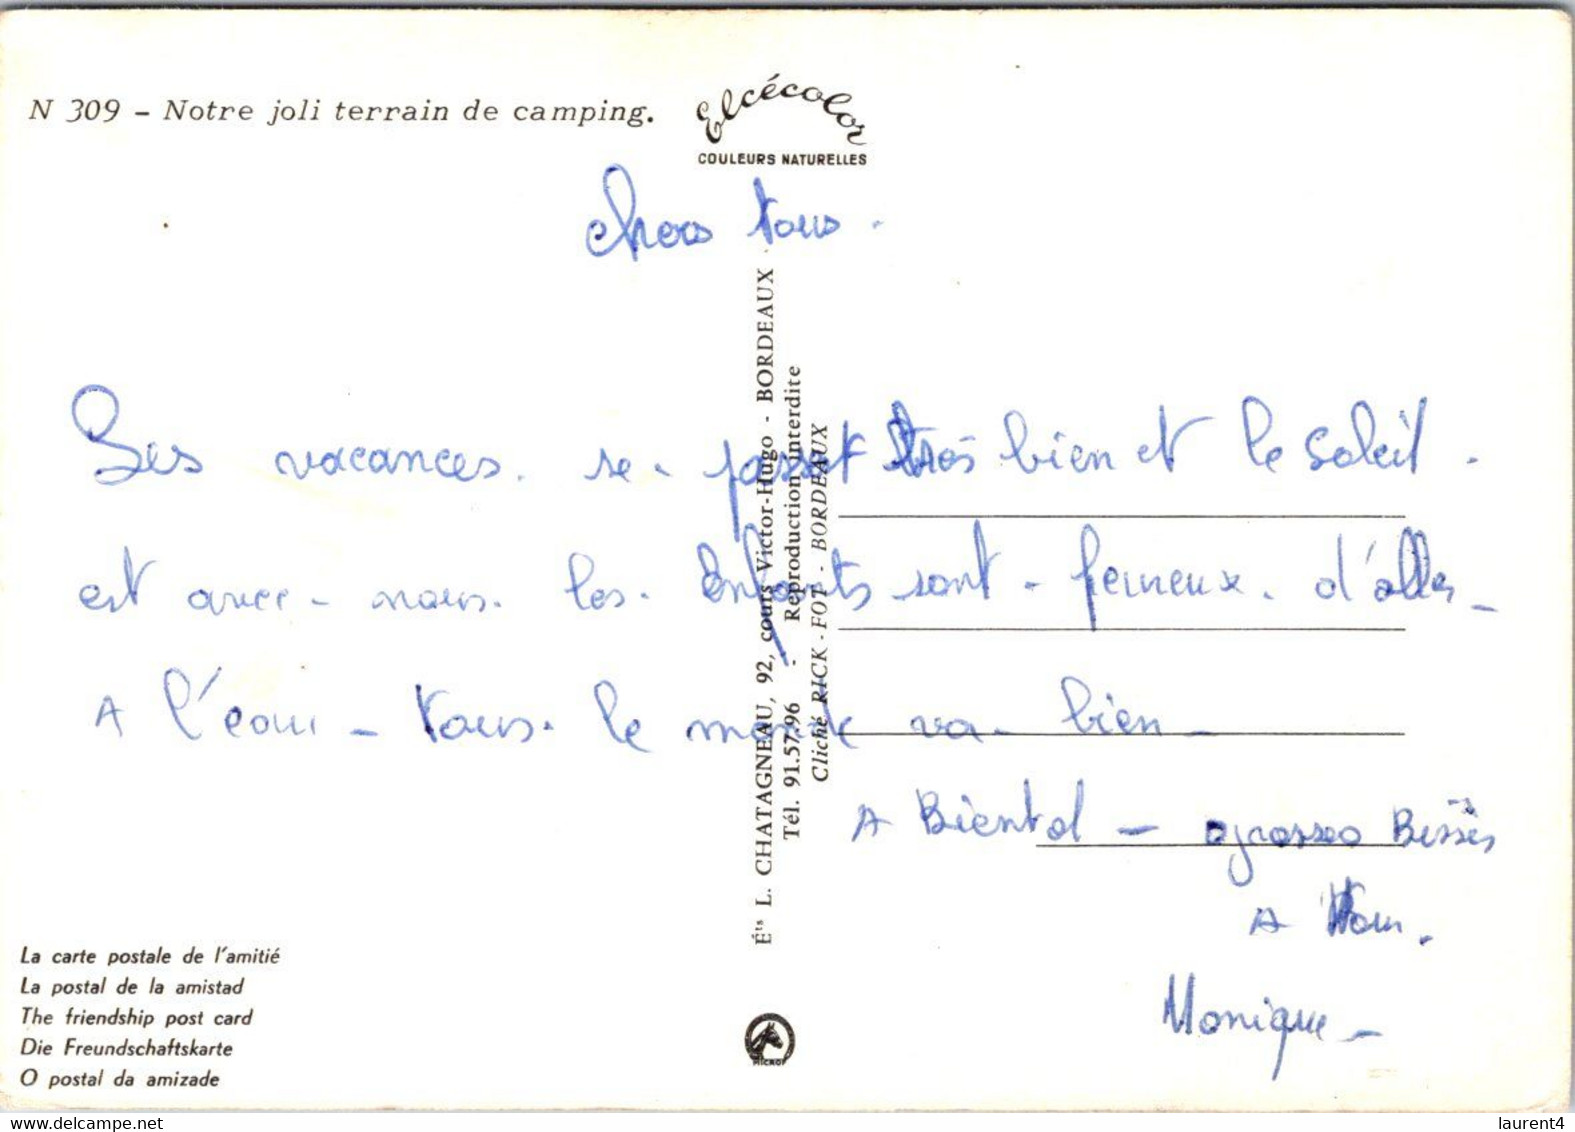 N 309 – Notre joli terrain de camping.
Elcécolor
COULEURS NATURELLES
chers tous.
Les vacances. se. passe très bien et le Soleil.
est avec - nous. les. Enfants sont - d'aller -
A l'eau - tous. le monde va - bien -
A Bientot - grosses Bisses
A tous.
Monique -
Éts L. CHATAGNEAU, 92, cours Victor-Hugo - BORDEAUX
Tél. 91.57.96 - Reproduction interdite
Cliché RICK-FOT - BORDEAUX
La carte postale de l'amitié
La postal de la amistad
The friendship post card
Die Freundschaftskarte
O postal da amizade
MICROF
www.delcampe.net
laurent4